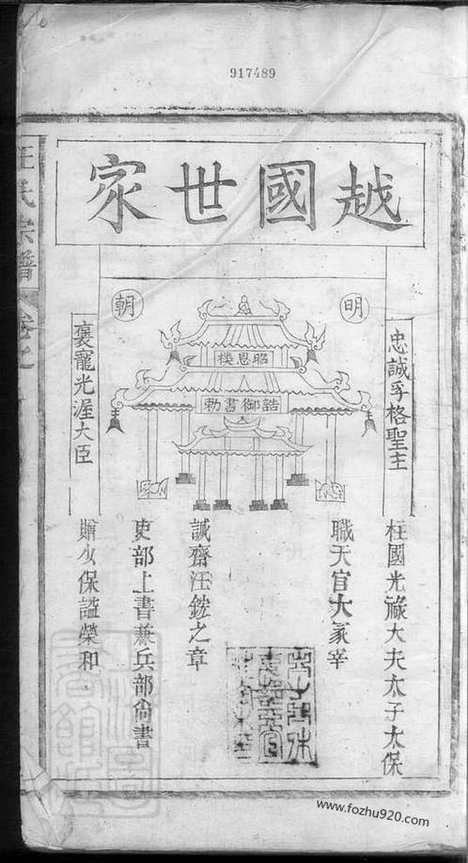 917489
越國世家
汪氏宗譜
明
朝
昭恩樓
誥御書勅
忠誠孚格聖主
褒寵光渥大臣
柱國光祿大夫太子太保
職天官大冢宰
誠齋汪鋐之章
吏部上書兼兵部尙書
贈少保謚榮和
www.fozhu920.com